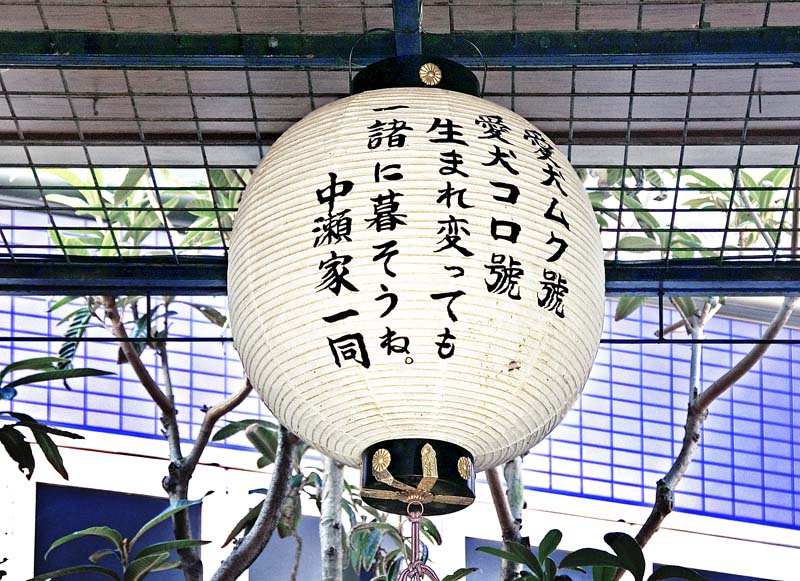 愛犬ムク號
愛犬コロ號
生まれ変っても
一諸に暮そうね。
中瀬家一同